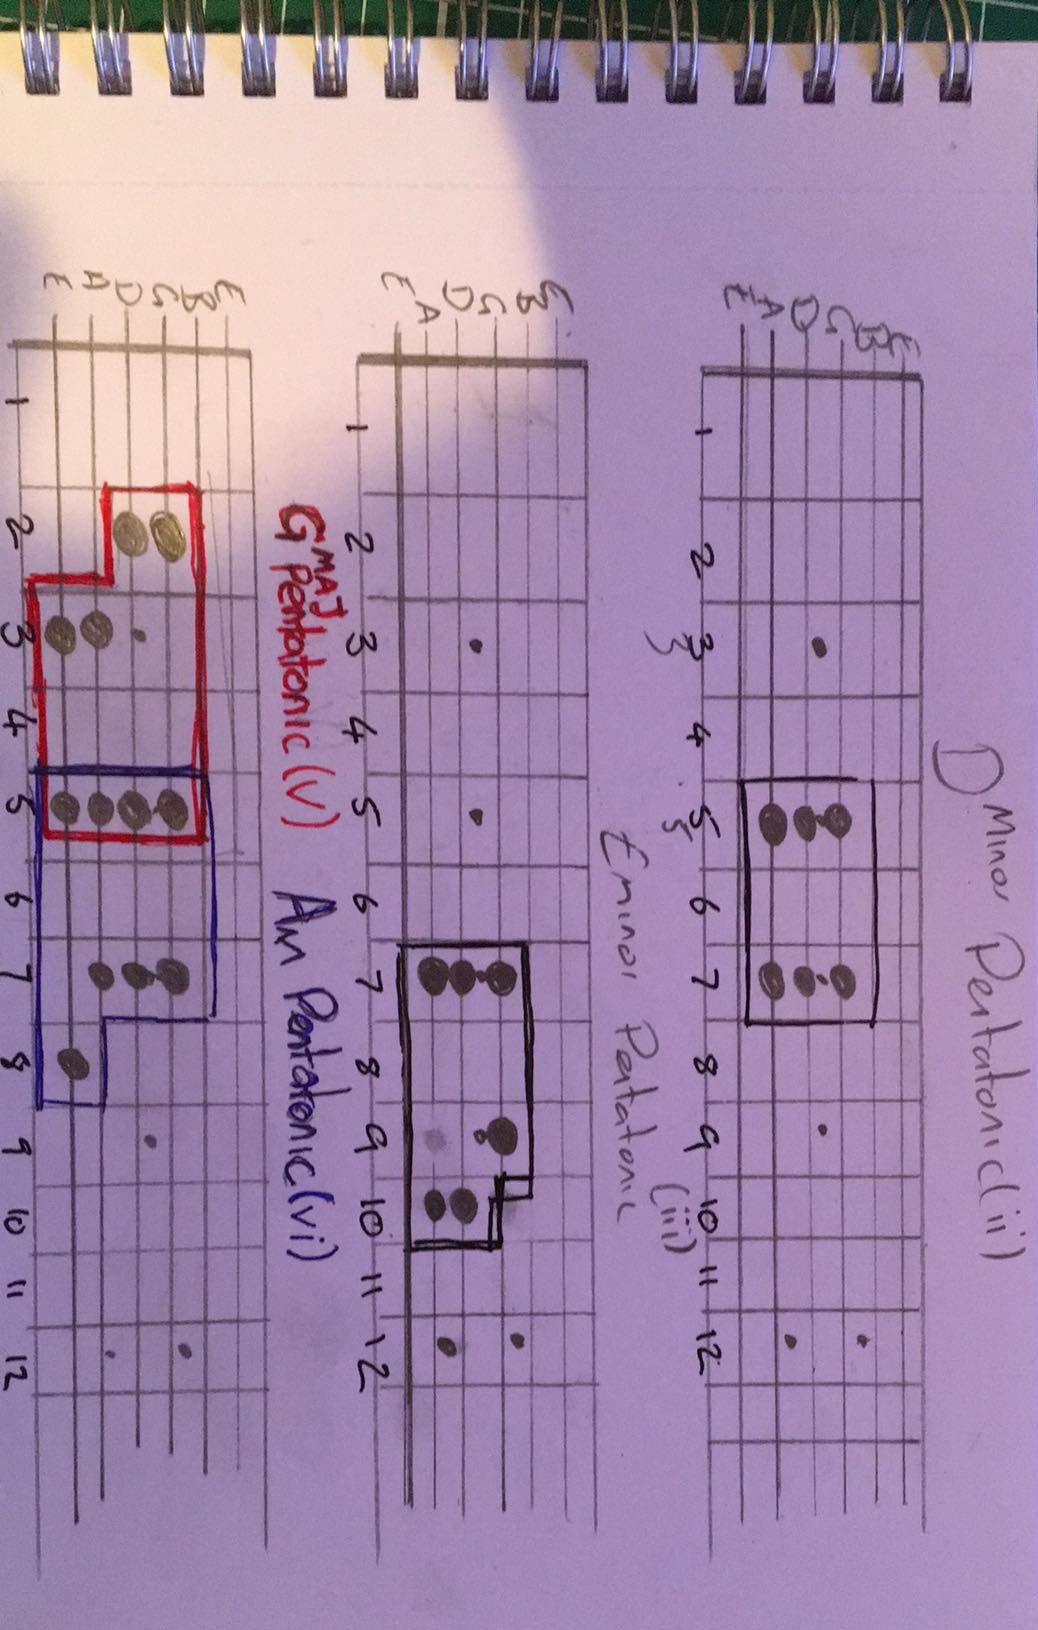 D Minor Pentatonic (ii)
E
B
G
D
A
E
1 2 3 4 5 6 7 8 9 10 11 12
3 5
(iii)
Eminor Pentatonic
E
B
G
D
A
E
1 2 3 4 5 6 7 8 9 10 11 12
G MAJ Pentatonic (V) Am Pentatonic (vi)
E
B
G
D
A
E
1 2 3 4 5 6 7 8 9 10 11 12